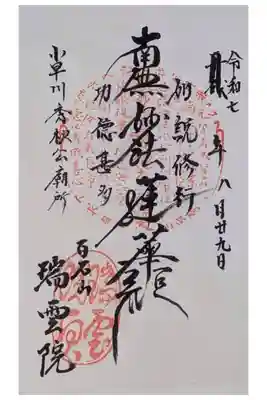 令和七年八月廿九日
如説修行
南無妙法蓮華経
功徳甚多
小早川秀秋公廟所
瑞雲院